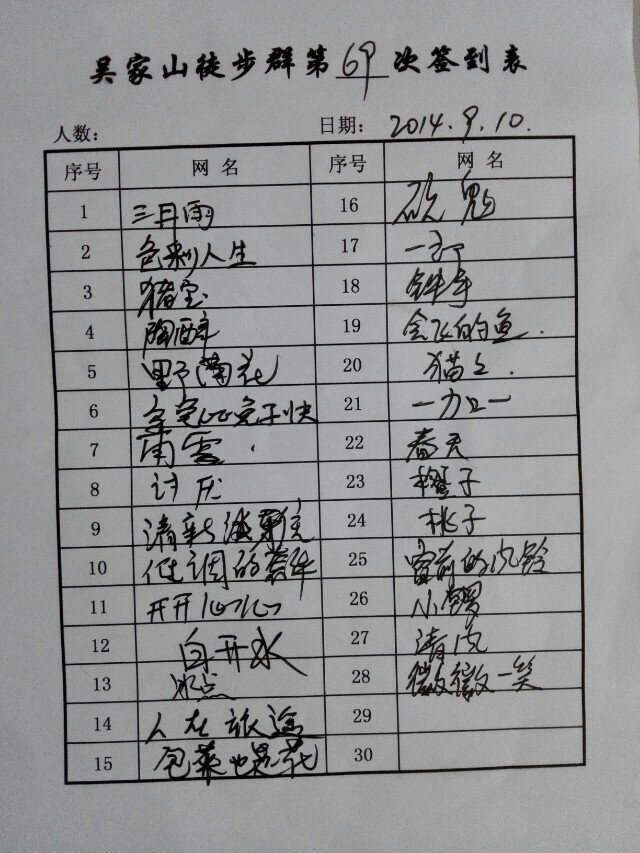 吴家山徒步群第69次签到表
人数: 日期: 2014.9.10.
序号 网名 序号 网名
1 三月雨 16 砍鬼
2 色彩人生 17 一
3 猪宝 18
4 陶醉 19 会飞的鱼.
5 野菊花 20 猫
6 兔子快 21 一加一
7 南雲. 22 春天
8 讨厌 23 橙子
9 清新淡雅 24 桃子
10 低调的 25 窗前的风铃
11 开开心心 26 小
12 白开水 27 清风
13 冰点 28 微微一笑
14 人在旅途 29
15 包菜也是花 30